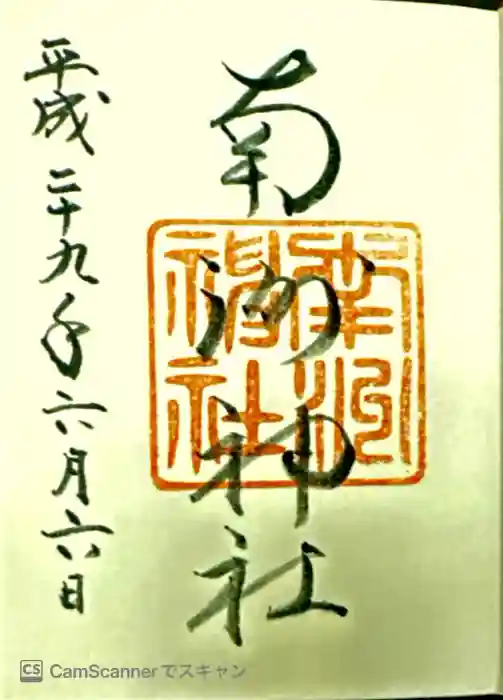 南洲神社
平成二十九年六月六日
CS CamScannerでスキャン